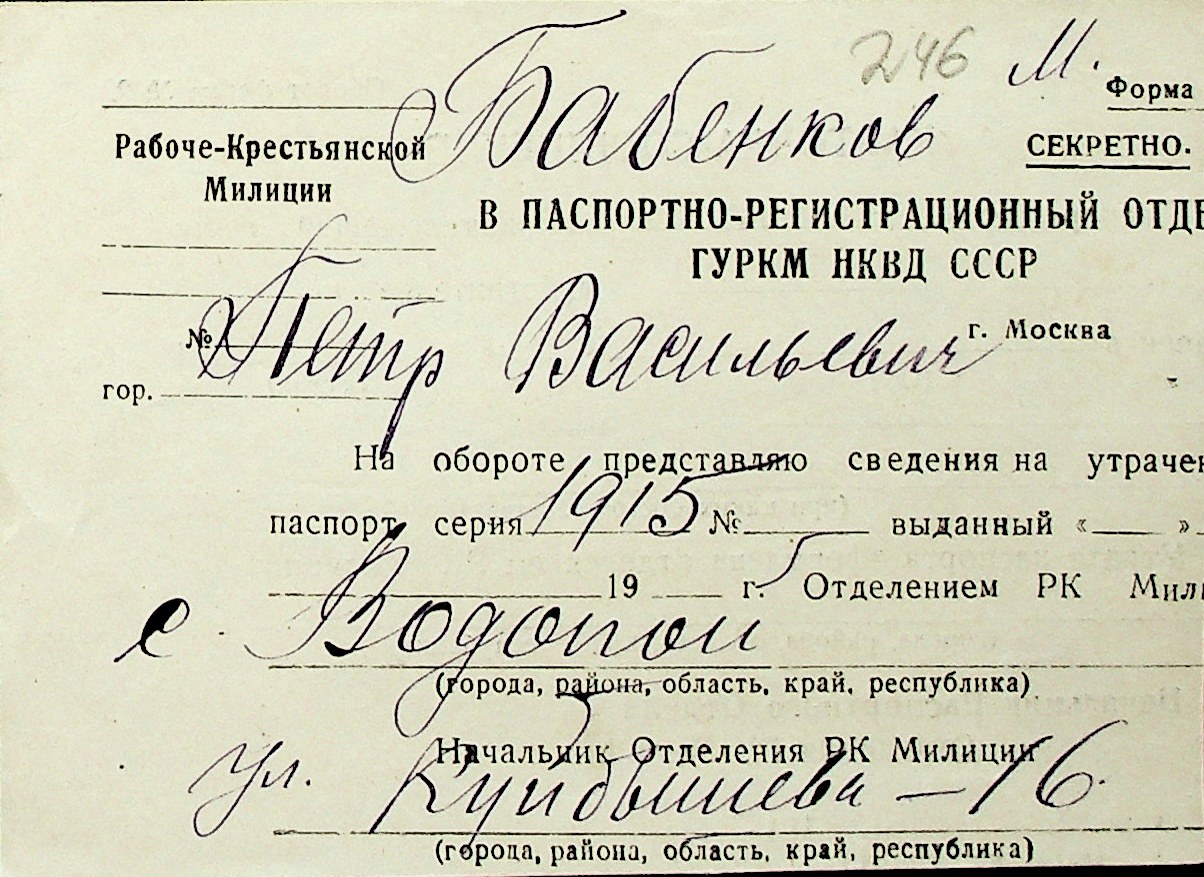 246 М. Форма
Бабенков
Рабоче-Крестьянской
Милиции
СЕКРЕТНО.
В ПАСПОРТНО-РЕГИСТРАЦИОННЫЙ ОТДЕ
ГУРКМ НКВД СССР
№ Петр Васильевич г. Москва
гор.
На обороте представляю сведения на утрачен
паспорт серия 1915 № выданный « »
19 г. Отделением РК Мили
с. Водопой
(города, района, область, край, республика)
Начальник Отделения РК Милиции
ул. Куйбышева – 16.
(города, района, область, край, республика)